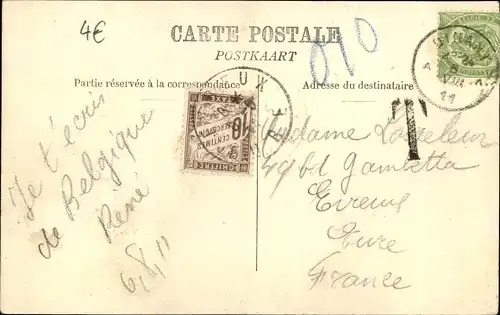 4€
CARTE POSTALE
POSTKAART
010
Partie réservée à la correspondance
Adresse du destinataire
T
10
CENTIMES
À PERCEVOIR
CHIFFRE
TAXE
EUX
EURE
DINANT
11
Je t'écris
de Belgique
René
6/8/11
Madame
49 bd Gambetta
Evreux
Eure
France